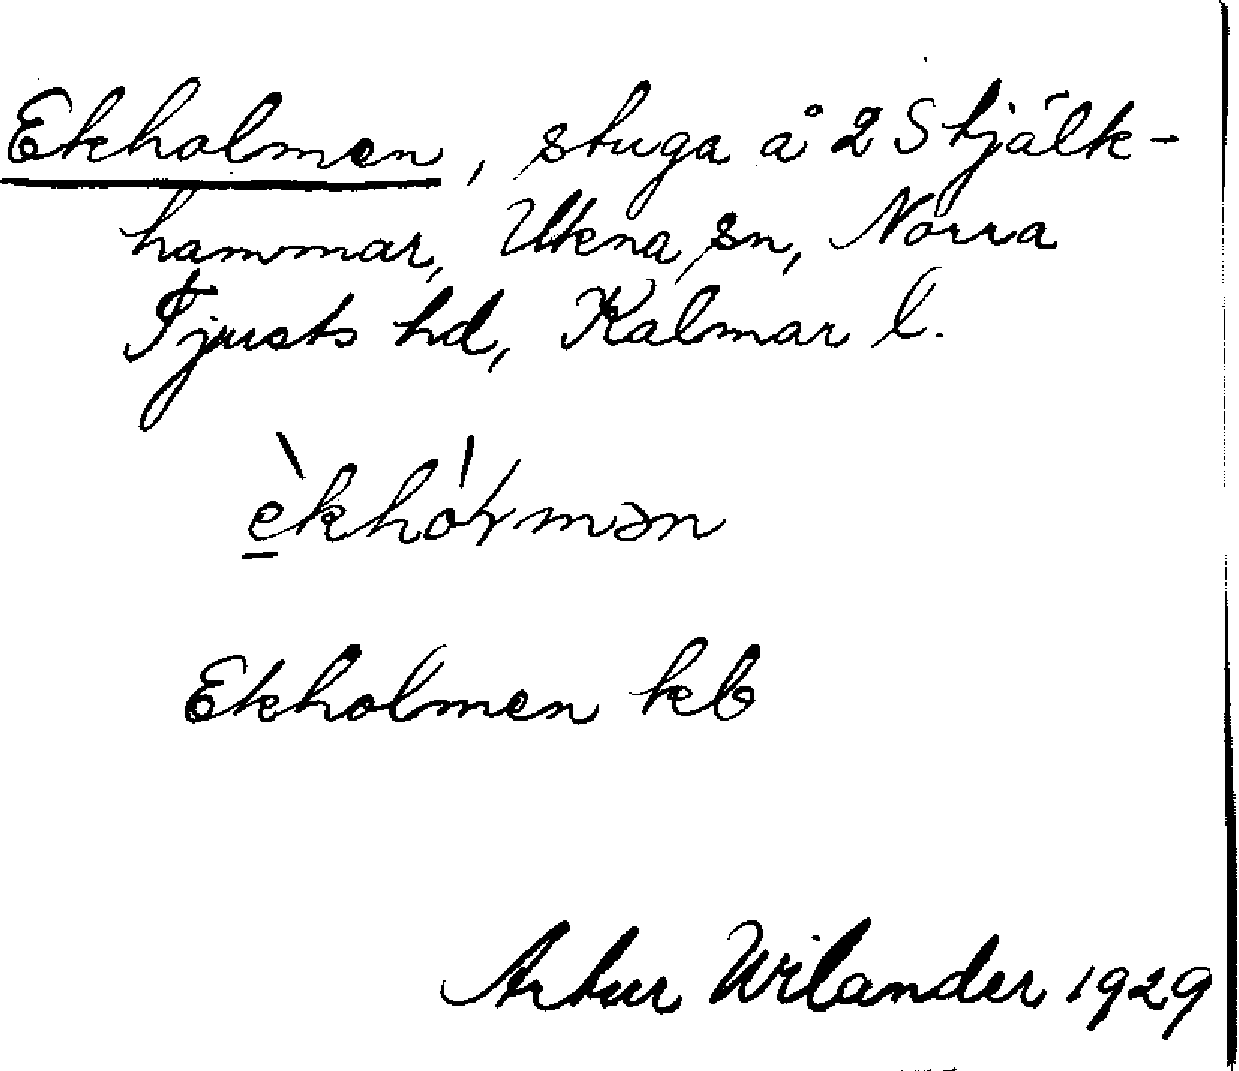 Ekholmen, stuga å 2 Stjälk-
hammar, Ukna sn, Norra
Tjusts hd, Kalmar l.
Ekholmen kb
Artur Wilander 1929